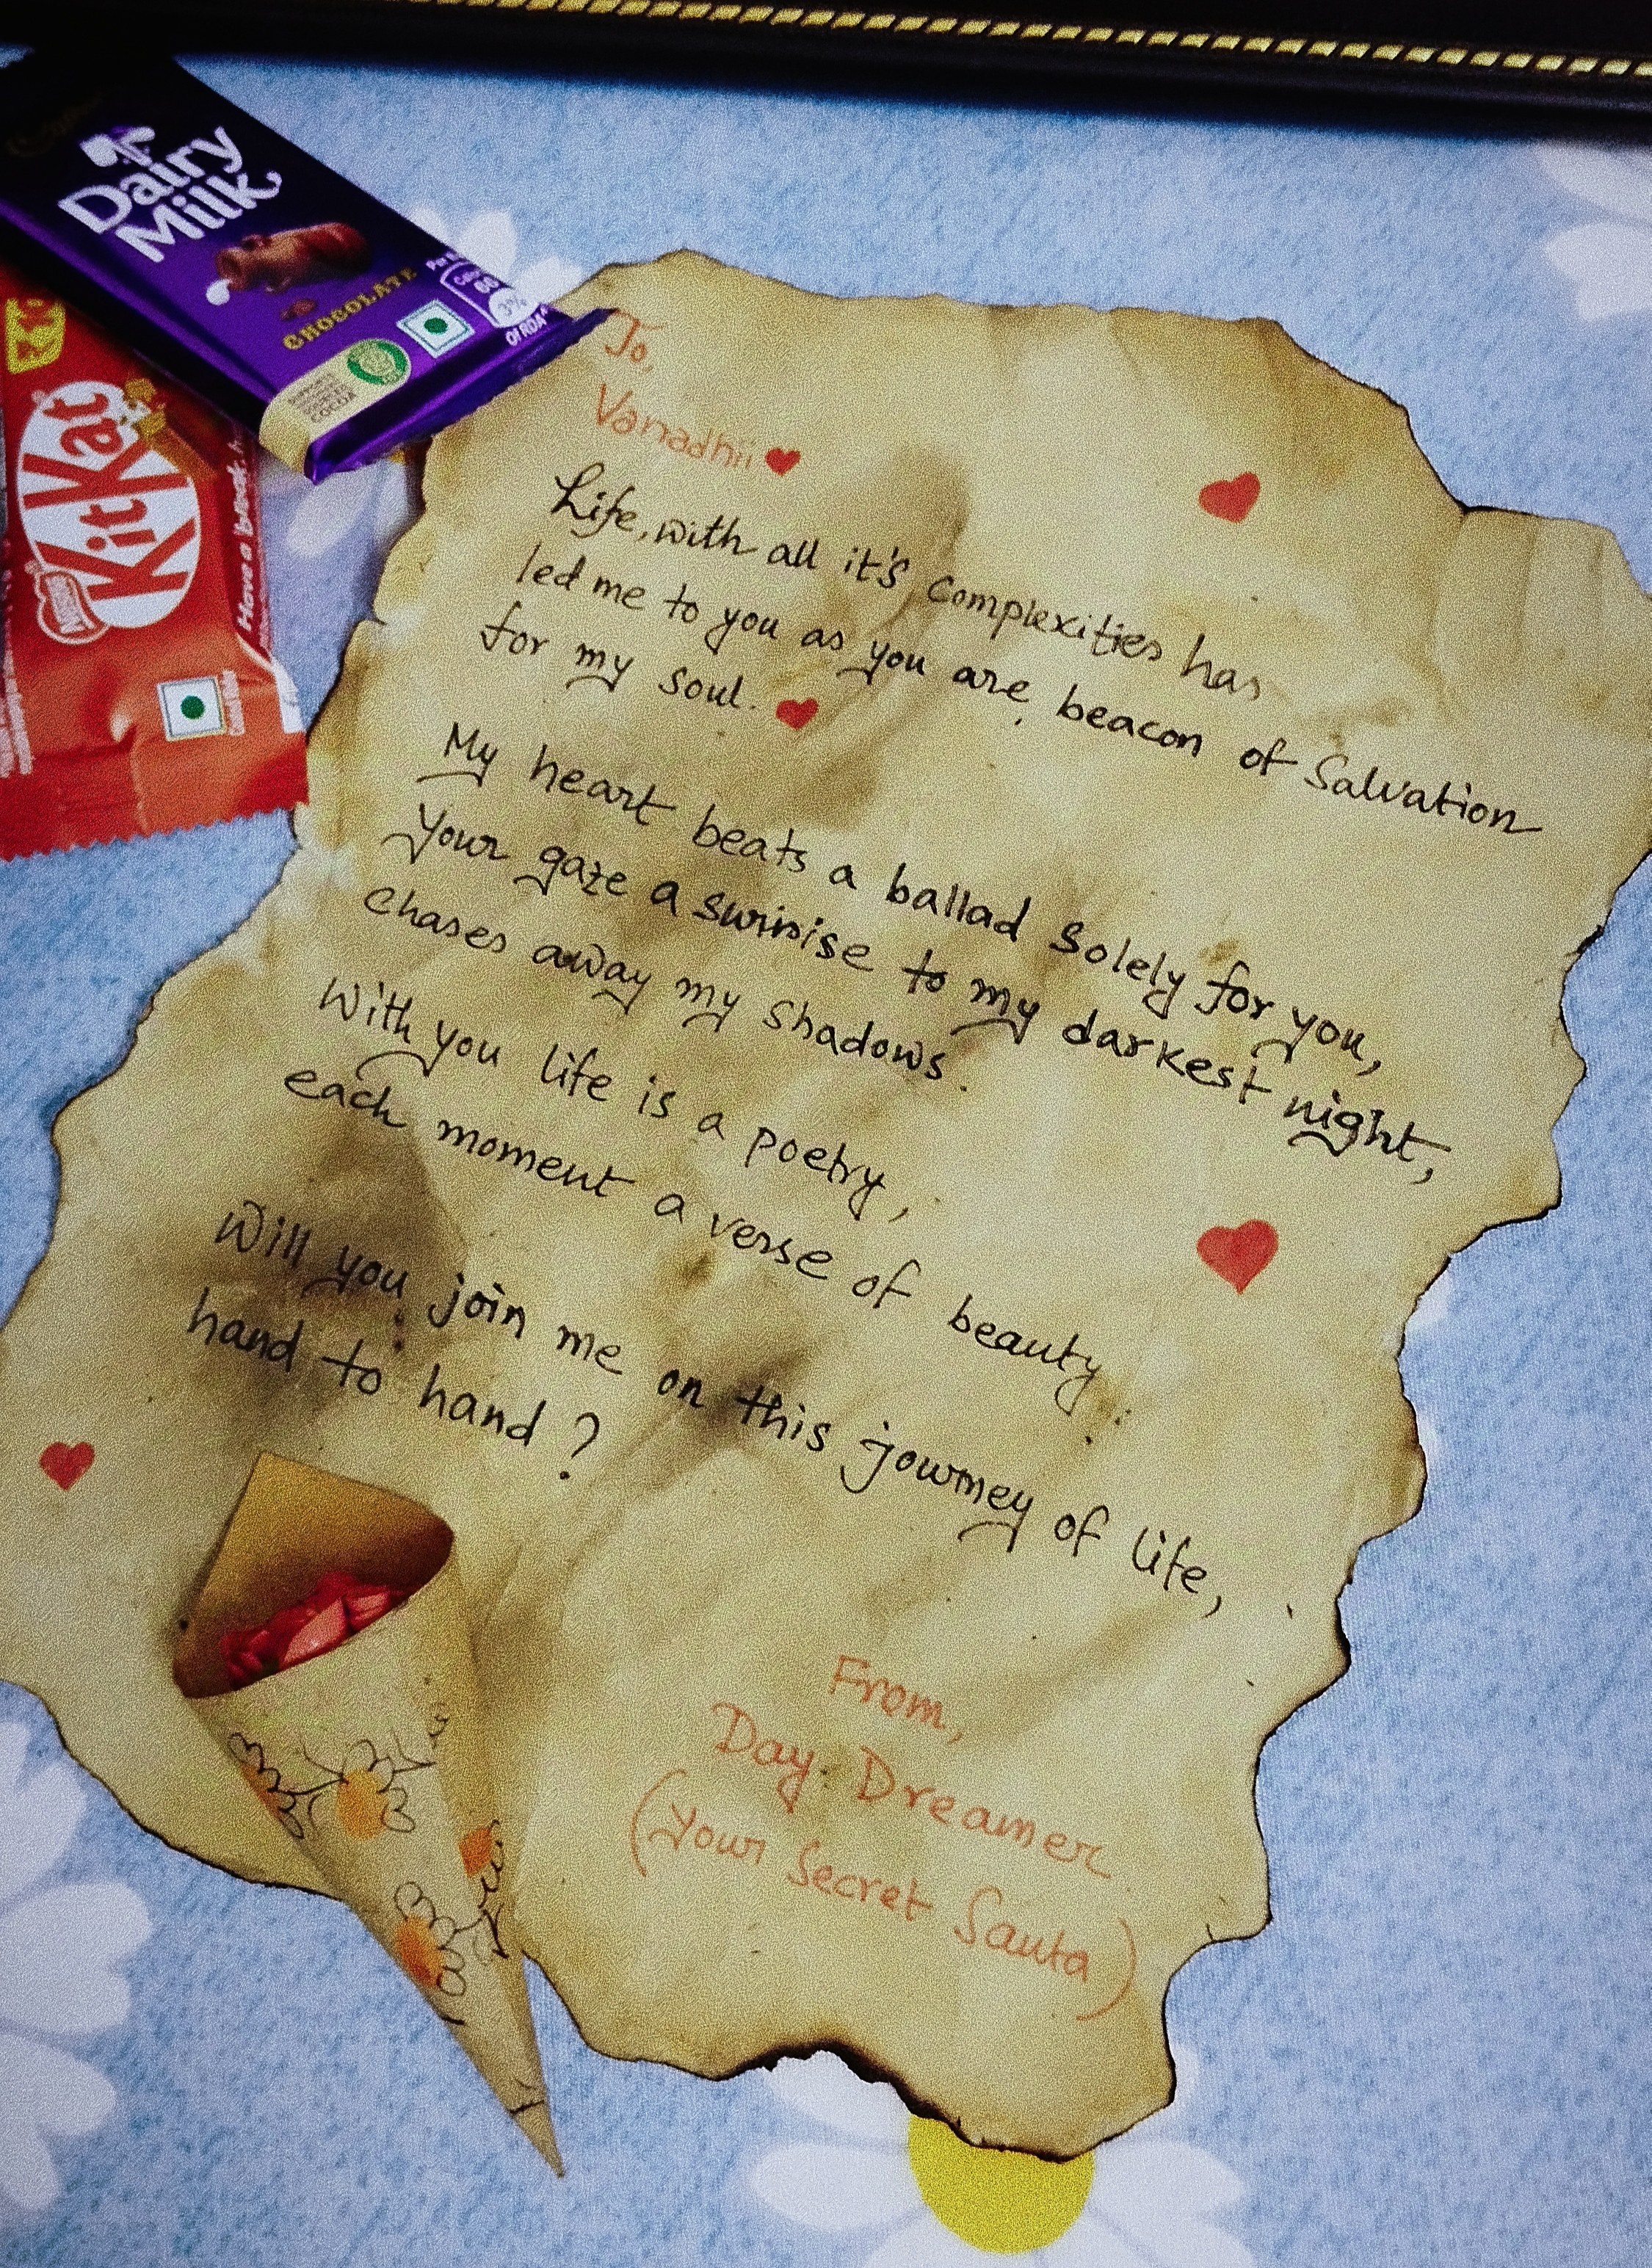 Dairy
Milk
CHOCOLATE
OF RDA
3%
COCOA
KitKat
Nestlé
Have a break,
To,
Vanadhii
Life, with all it's complexities has
led me to you as you are, beacon of Salvation
for my soul.
My heart beats a ballad Solely for you,
Your gaze a sunrise to my darkest night,
chases away my shadows.
With you life is a poetry,
each moment a verse of beauty.
Will you join me on this journey of life,
hand to hand?
From,
Day. Dreamer
(Your Secret Santa)